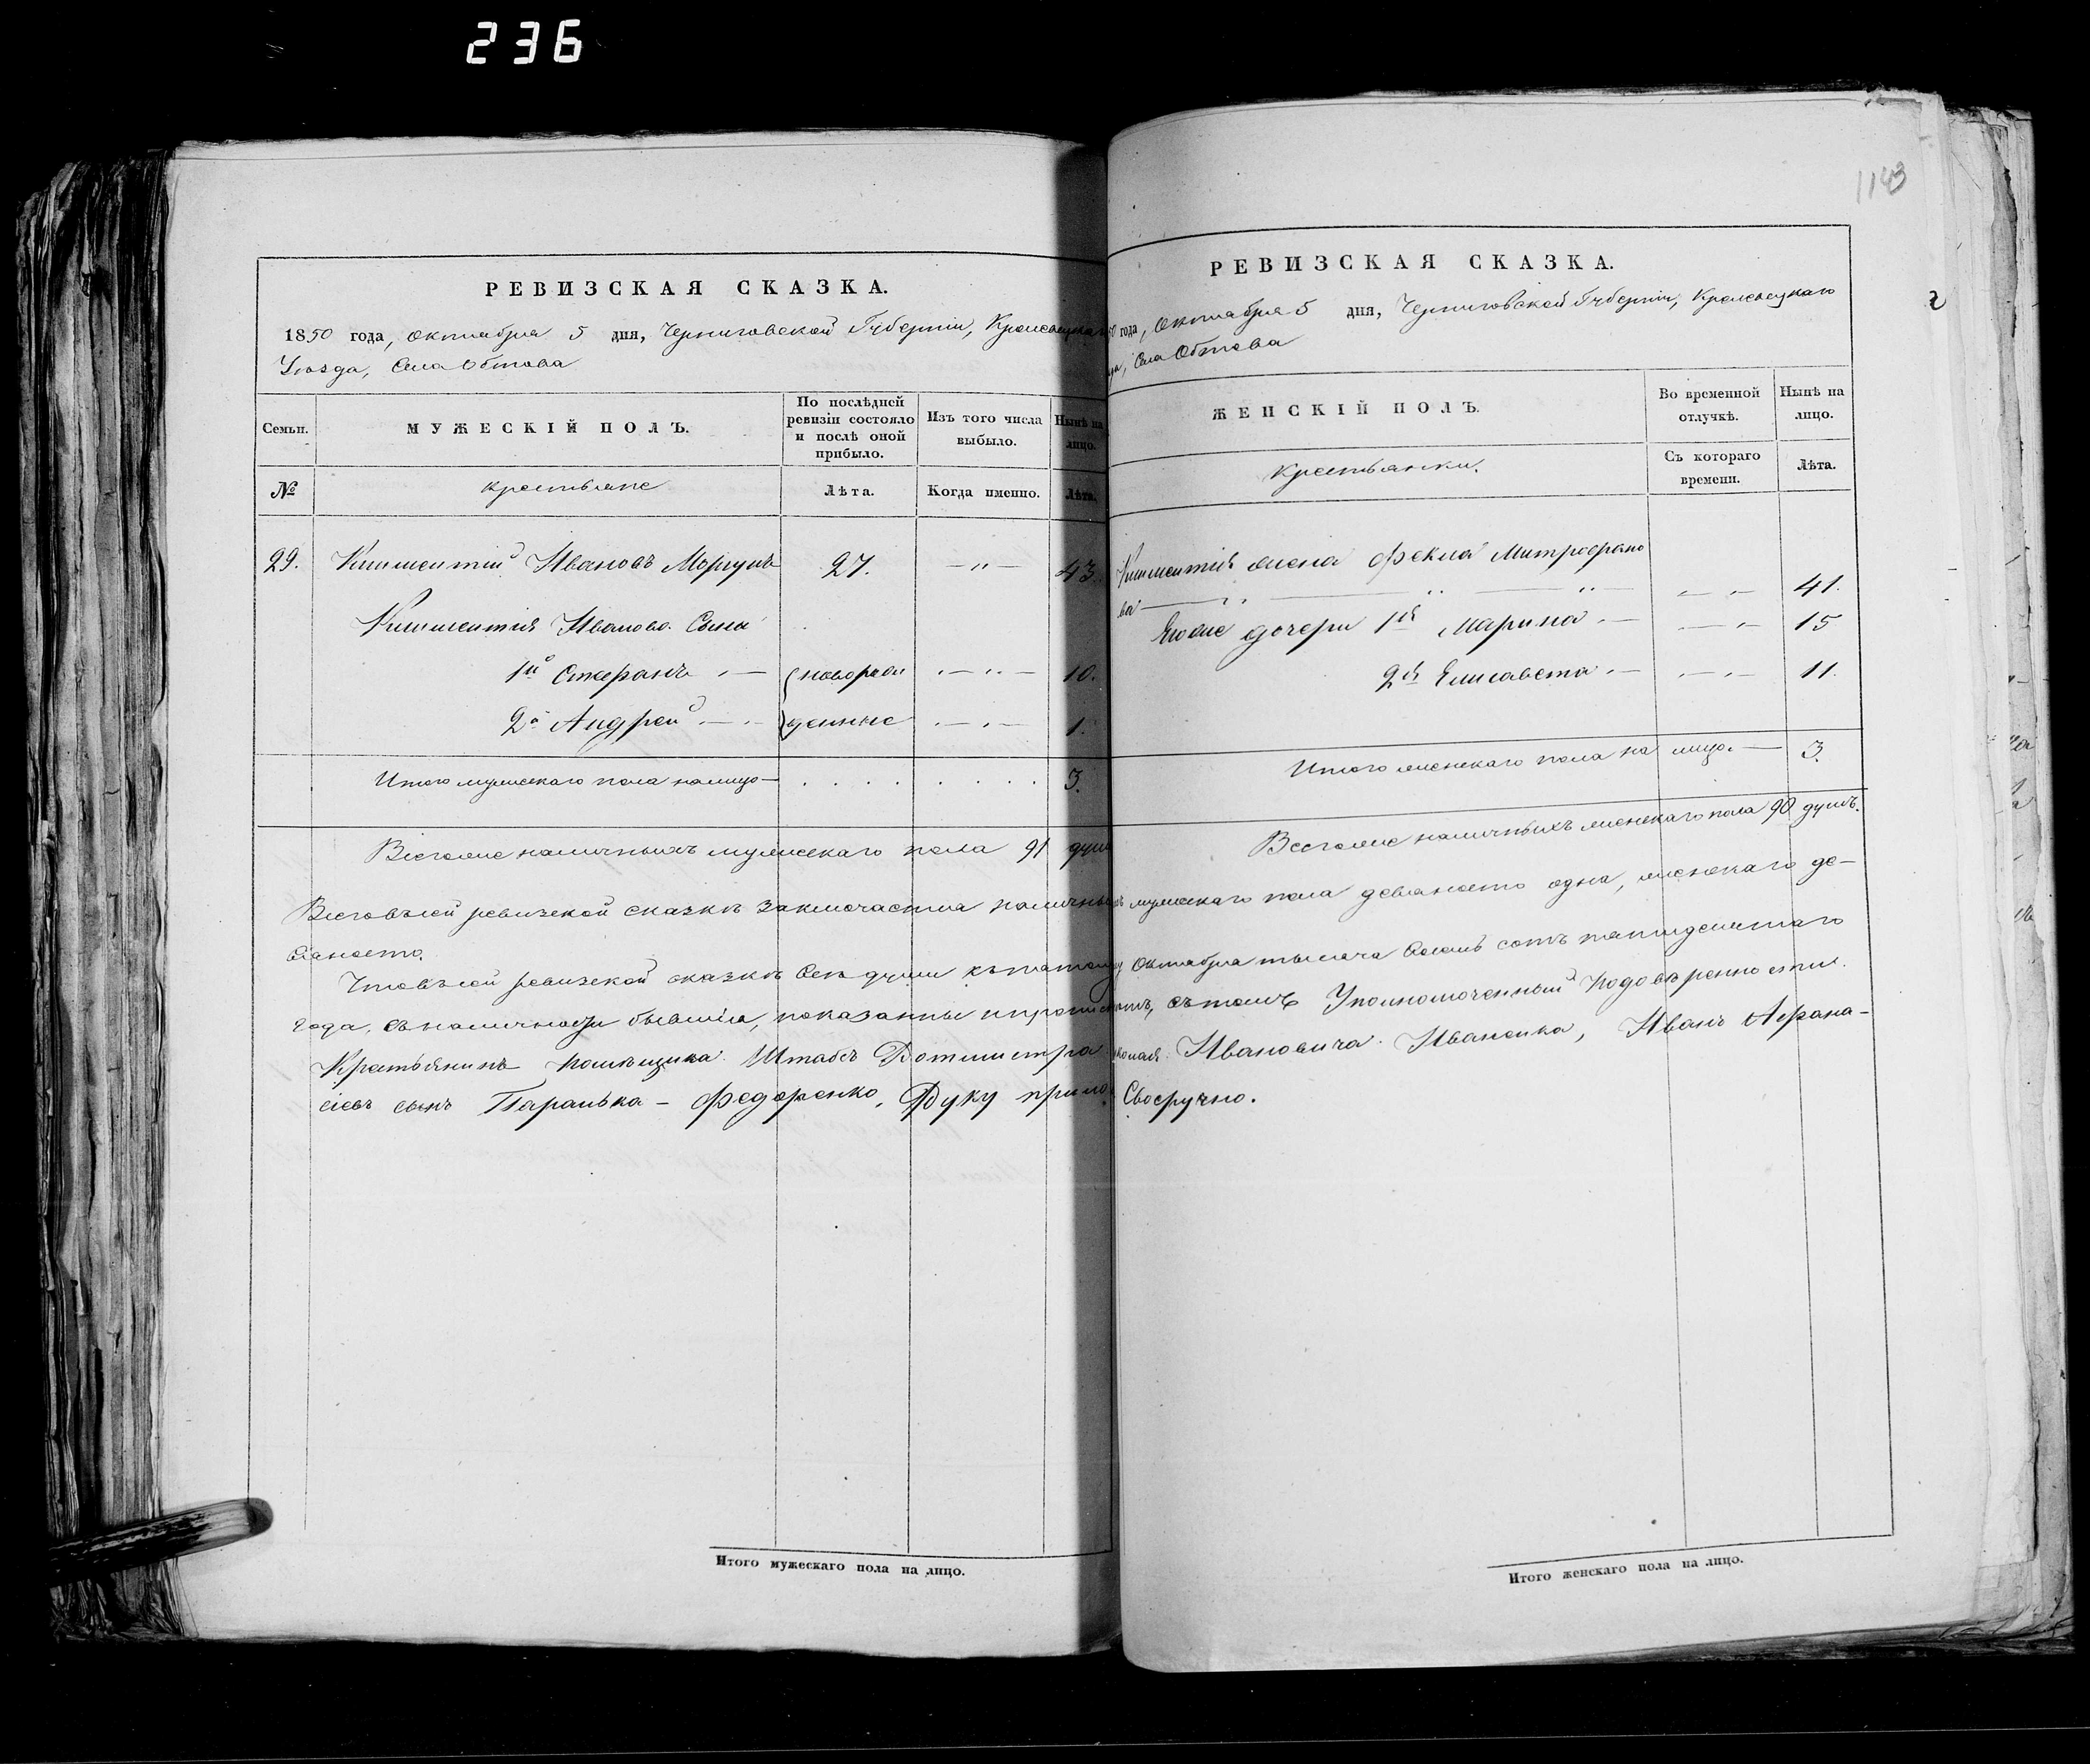 236
1143
РЕВИЗСКАЯ СКАЗКА.
1850 года, октября 5 дня, Черниговской Губерніи, Кролевецкаго
Уѣзда, Села Обтова
Семьи.
МУЖЕСКІЙ ПОЛЪ.
По послѣдней ревизіи состояло и послѣ оной прибыло.
Изъ того числа выбыло.
Нынѣ на лицо.
№
крестьяне
Лѣта.
Когда именно.
Лѣта.
29. Климентій Ивановъ Моргунъ 27. — " — 43.
Климентія Иванова Сыны
1й Стефанъ — новорож 10.
2й Андрей — денные 1.
Итого мужескаго пола налицо — 3.
Всегоже наличныхъ мужескаго пола 91 душ
РЕВИЗСКАЯ СКАЗКА.
50 года, Октября 5 дня, Черниговской Губерніи, Кролевецкаго
да, Села Обтова
ЖЕНСКІЙ ПОЛЪ.
Во временной отлучкѣ.
Нынѣ на лицо.
крестьянки.
Съ котораго времени.
Лѣта.
Климентія жена Фекла Митрофано
ва — 41.
Егоже дочери 1я Марина — 15
2я Елисавета — 11.
Итого женскаго пола на лицо. — 3.
Всегоже наличныхъ женскаго пола 90 душъ.
Всеговъсей ревизской сказкѣ заключается наличныхъ мужескаго пола девяносто одна, женскаго де-
вяносто.
Чтовъсей ревизской сказкѣ всѣ души къпятому Октября тысяча восемь сотъ пятидесятаго
года, въналичности бывшіе, показанны и прописки нѣтъ, вътомъ Уполномоченный подовѣренности.
Крестьянинъ помѣщика Штабсъ Ротмистра Николая Ивановича Иваненка, Иванъ Афана-
сіевъ сынъ Паранька - Федоренко, Руку прило. Своеручно.
Итого мужескаго пола на лицо.
Итого женскаго пола на лицо.